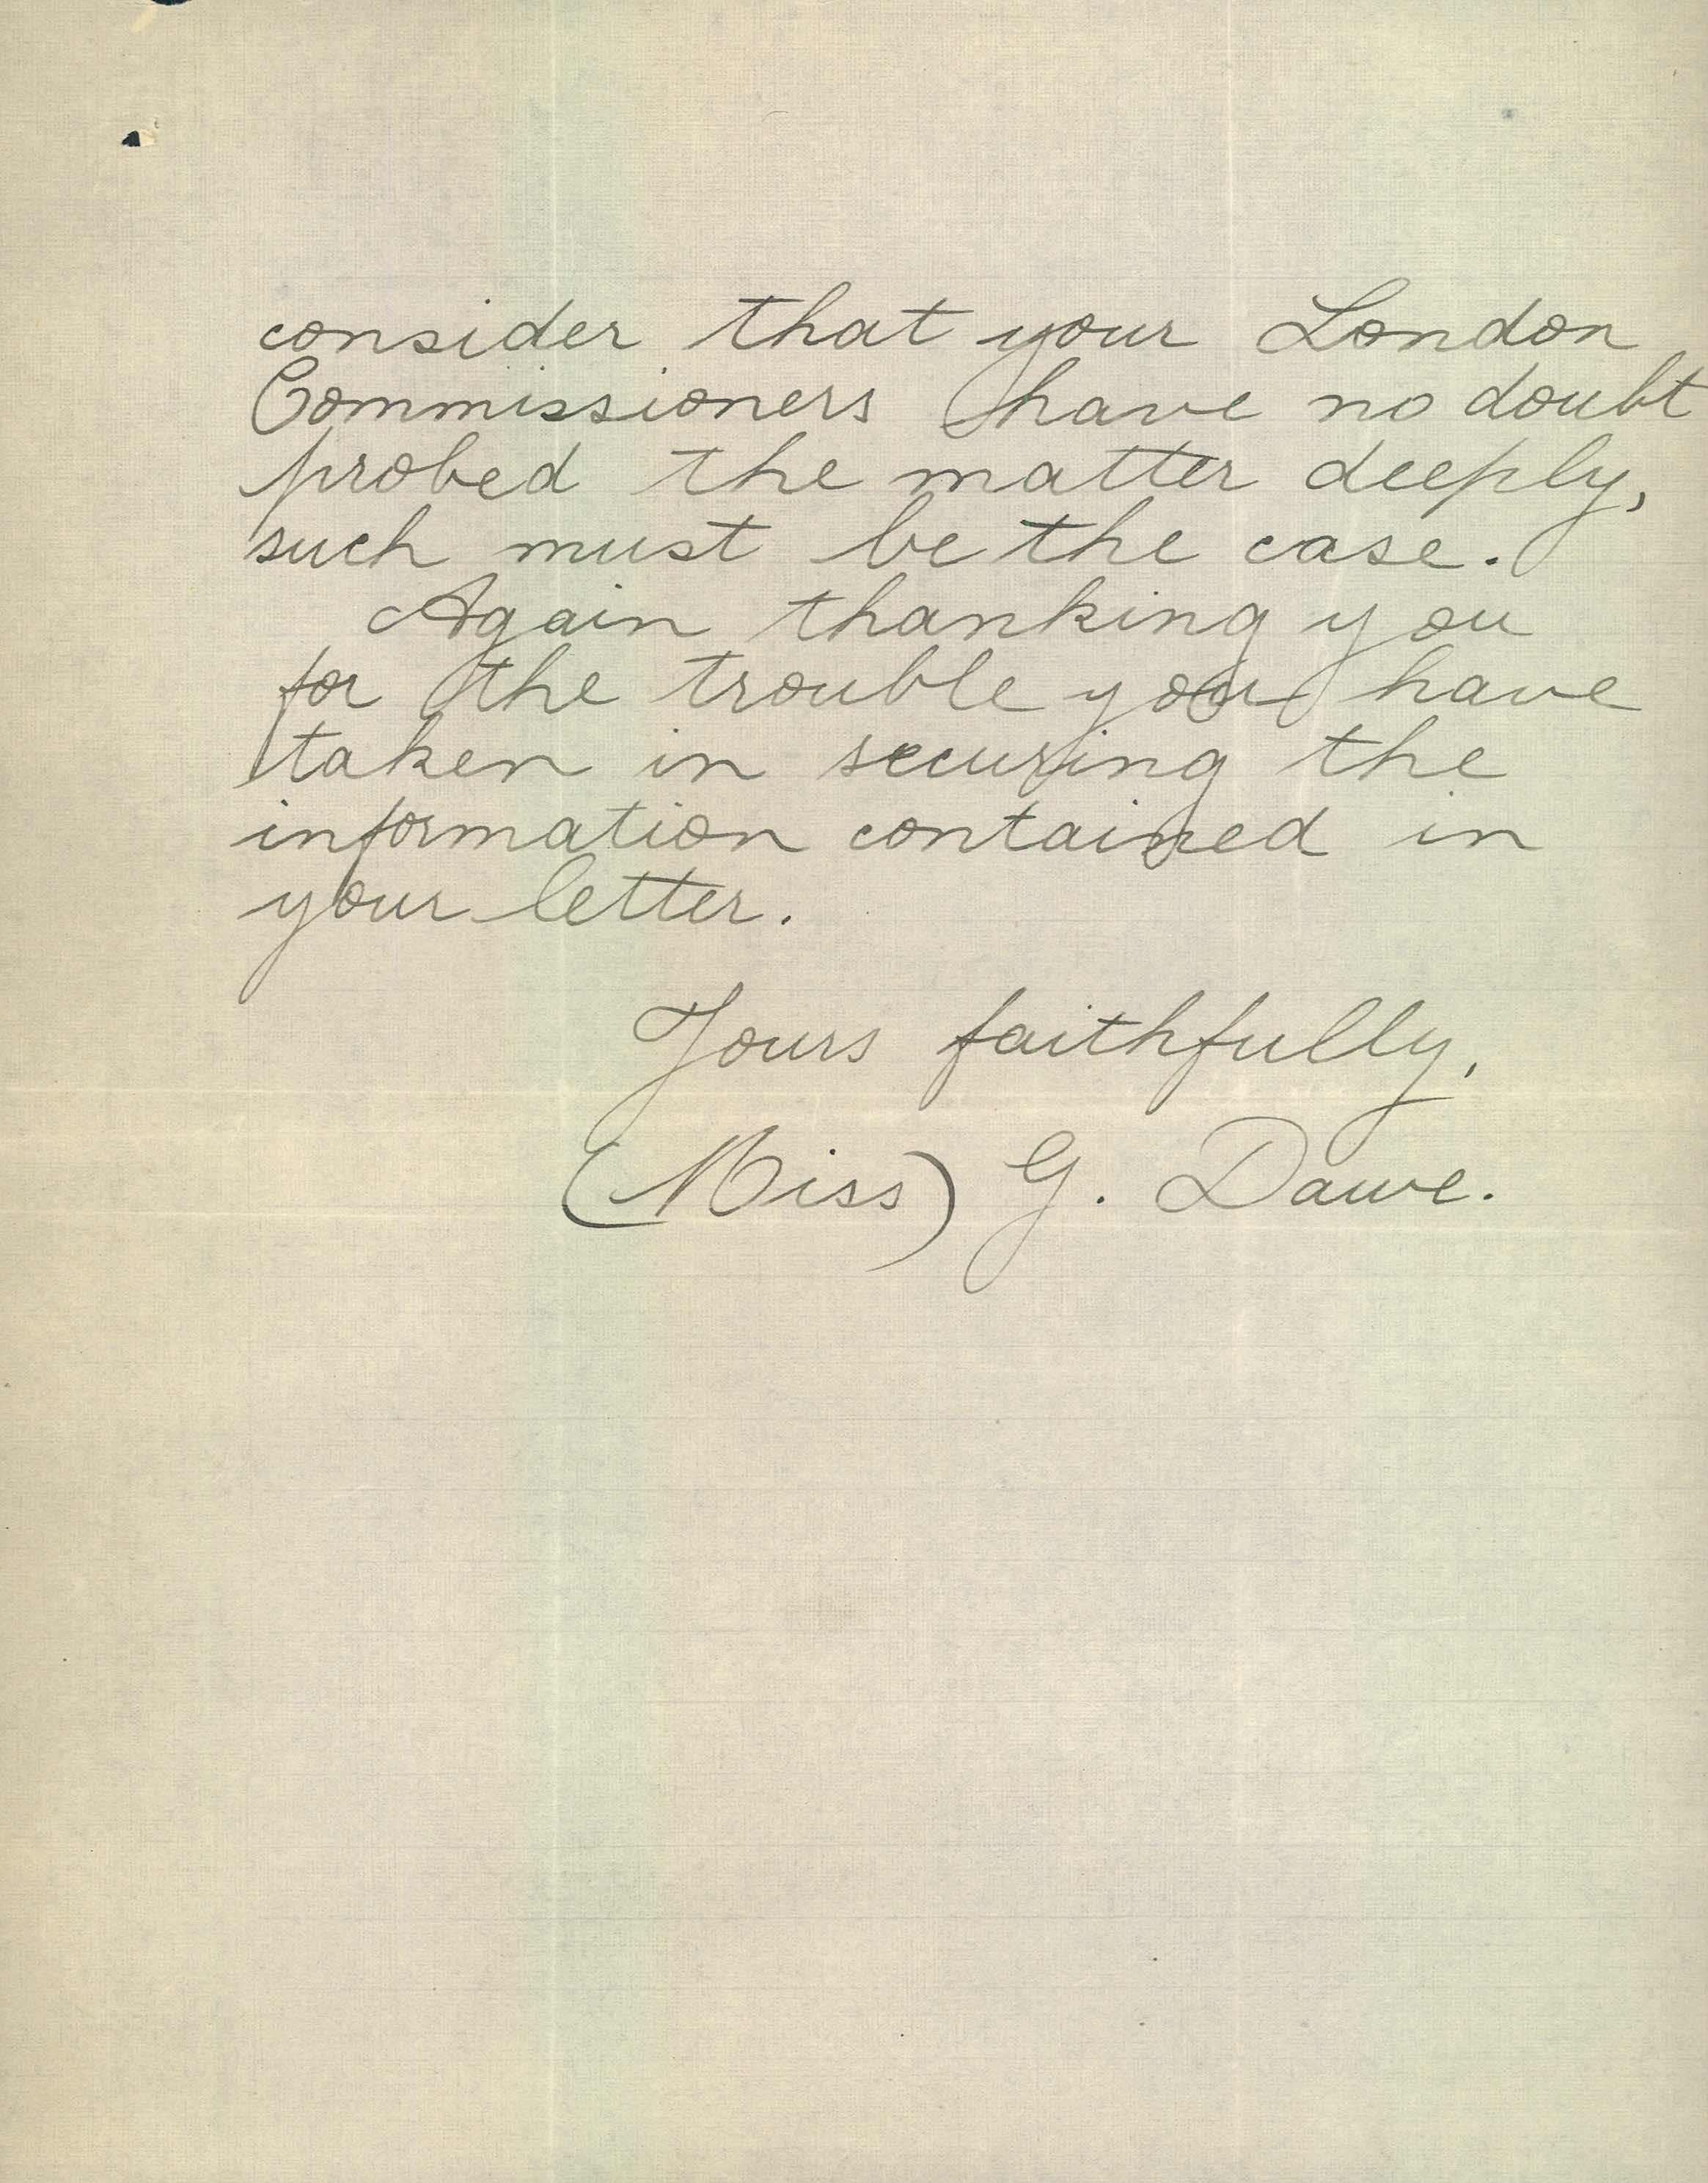 consider that your London
Commissioners have no doubt
probed the matter deeply,
such must be the case.
Again thanking you
for the trouble you have
taken in securing the
information contained in
your letter.
Yours faithfully,
(Miss) G. Dawe.